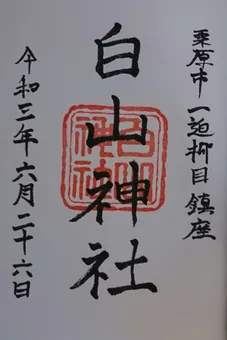 栗原市一迫柳目鎮座
白山神社
令和三年六月二十六日